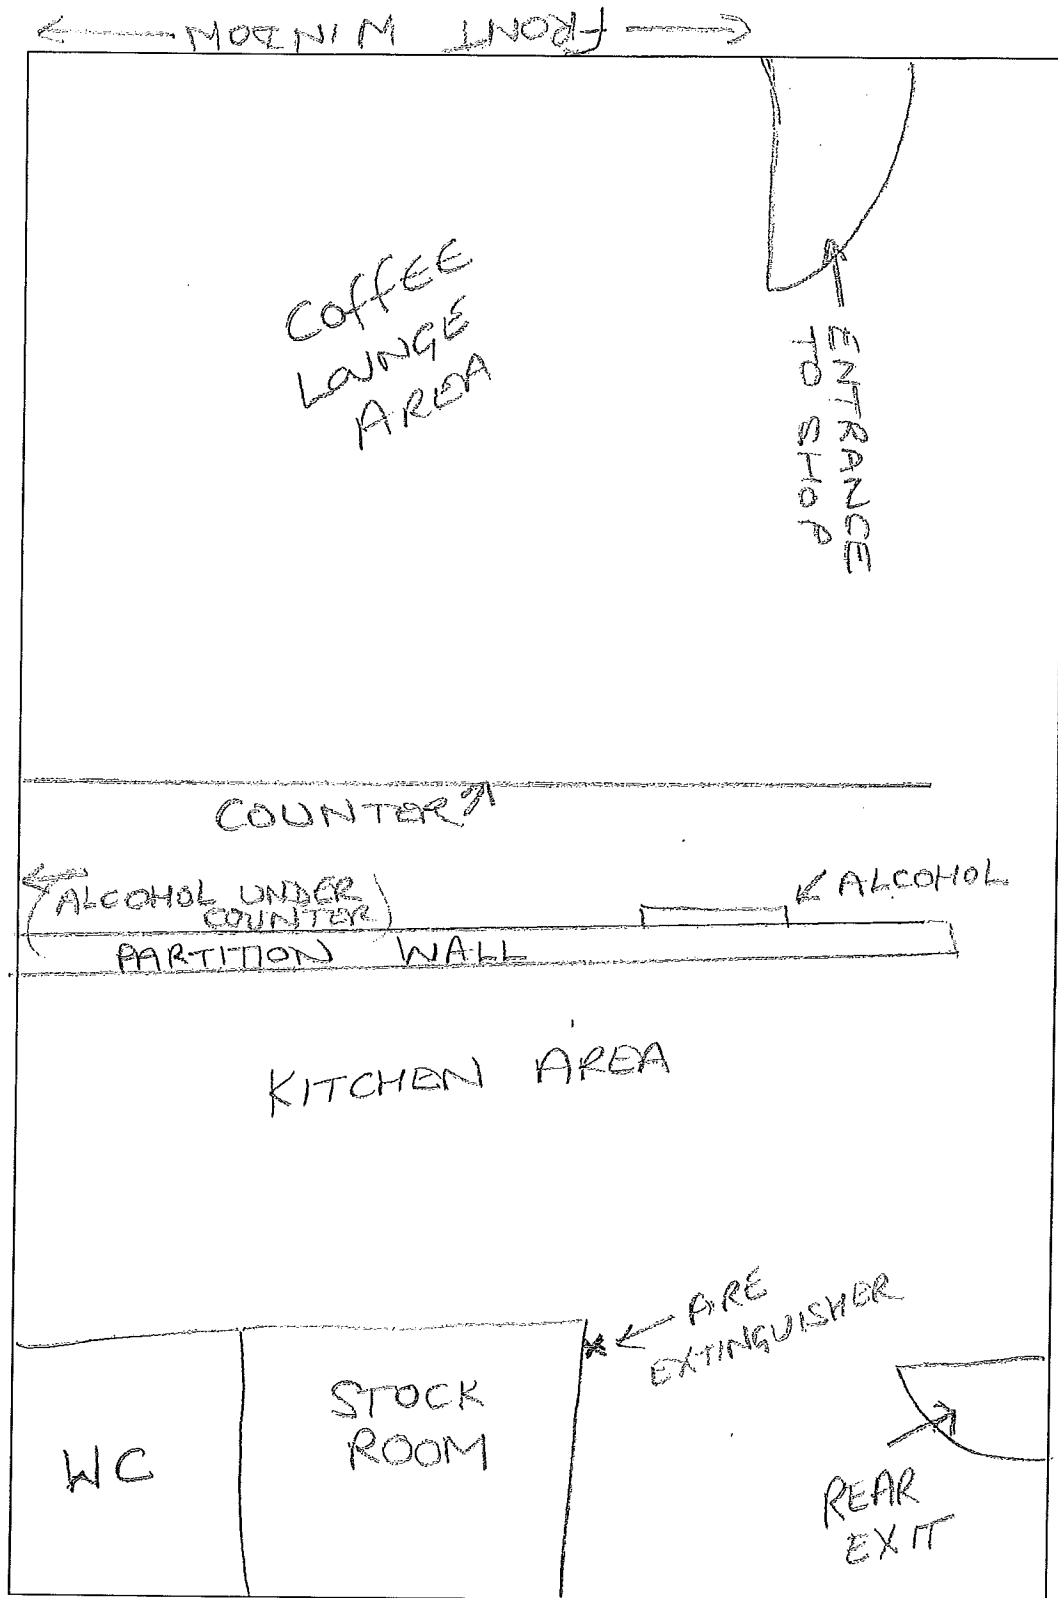 FRONT WINDOW
COFFEE
LOUNGE
AREA
ENTRANCE
TO SHOP
COUNTER
(ALCOHOL UNDER
COUNTER)
ALCOHOL
PARTITION WALL
KITCHEN AREA
FIRE
EXTINGUISHER
STOCK
ROOM
WC
REAR
EXIT